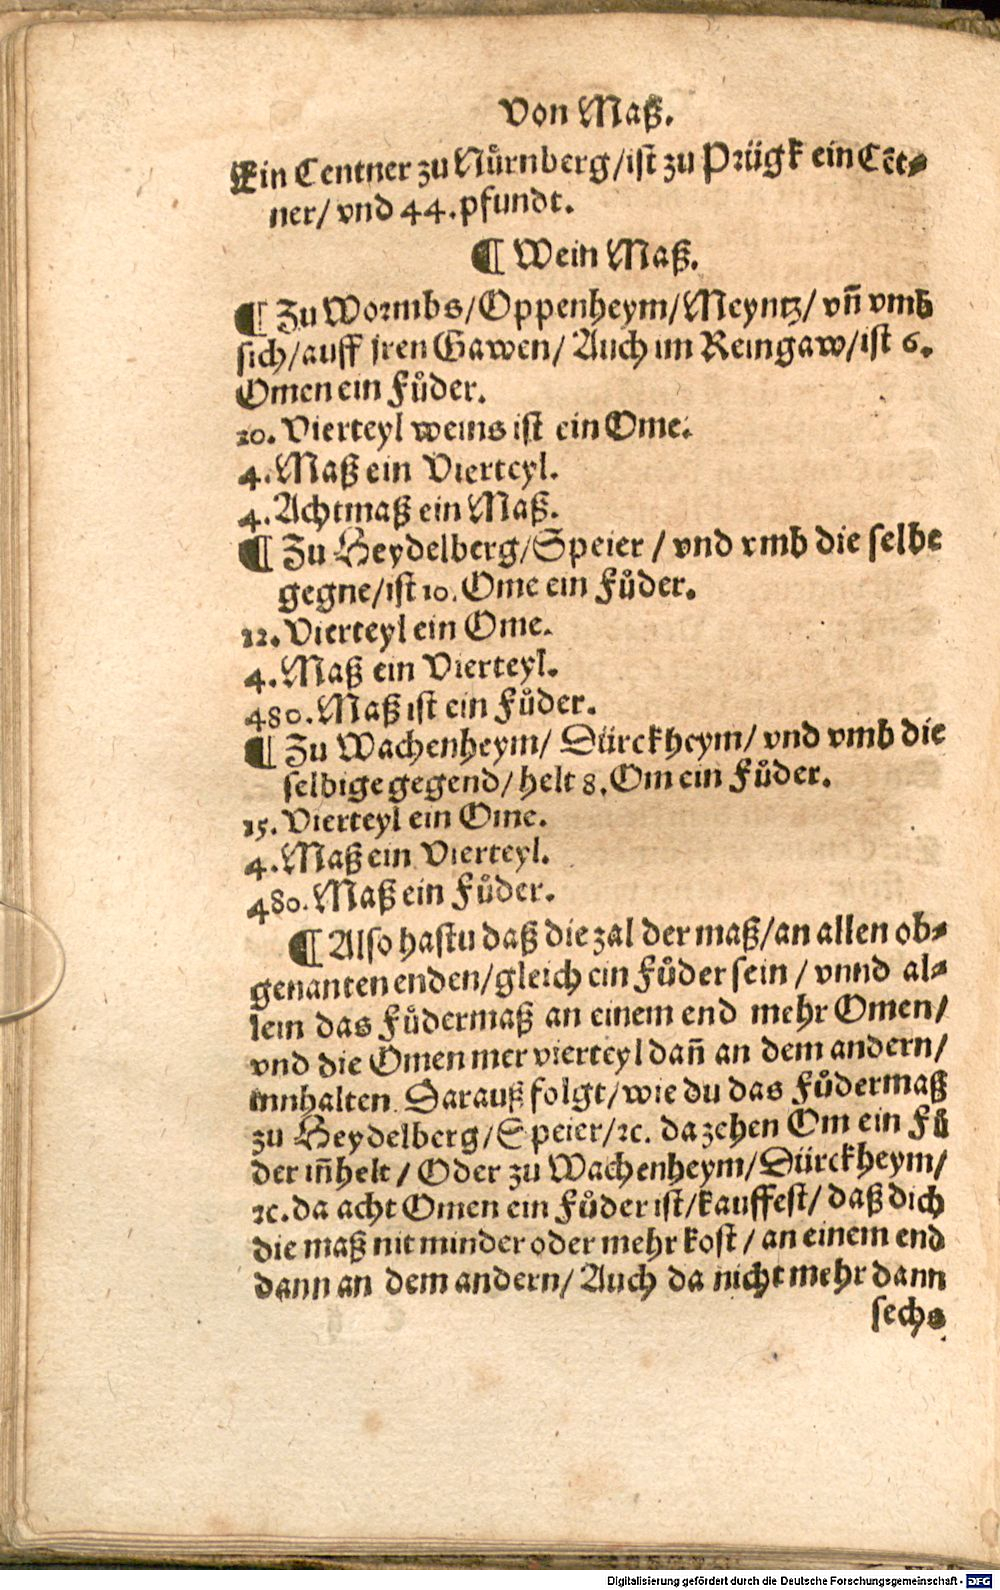 Von Maß.
Ein Centner zu Nůrnberg/ist zu Prügk ein Cẽt-
ner/ vnd 44.pfundt.
¶ Wein Maß.
¶ Zu Wormbs/Oppenheym/Meyntz/ vñ vmb
sich/auff jren Gawen/ Auch im Reingaw/ist 6.
Omen ein Fůder.
20. Vierteyl weins ist ein Ome.
4. Maß ein Vierteyl.
4. Achtmaß ein Maß.
¶ Zu Heydelberg/Speier / vnd vmb die selbe
gegne/ist 10. Ome ein Fůder.
12. Vierteyl ein Ome.
4. Maß ein Vierteyl.
480. Maß ist ein Fůder.
¶ Zu Wachenheym/ Dürckheym/ vnd vmb die
selbige gegend/ helt 8. Om ein Fůder.
15. Vierteyl ein Ome.
4. Maß ein Vierteyl.
480. Maß ein Fůder.
¶ Also hastu daß die zal der maß/an allen ob-
genanten enden/gleich ein Fůder sein / vnnd al-
lein das Fůdermaß an einem end mehr Omen/
vnd die Omen mer vierteyl dañ an dem andern/
innhalten. Darauß folgt/wie du das Fůdermaß
zu Heydelberg/Speier/ꝛc. da zehen Om ein Fů
der iñhelt / Oder zu Wachenheym/Dürckheym/
ꝛc. da acht Omen ein Fůder ist/kauffest/ daß dich
die maß nit minder oder mehr kost / an einem end
dann an dem andern/ Auch da nicht mehr dann
sechs
Digitalisierung gefördert durch die Deutsche Forschungsgemeinschaft - DFG